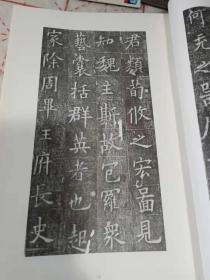 何充之器
君類荀攸之宏啚見
知魏主斯故包羅衆
藝囊括群英者也起
家除周畢王府長史